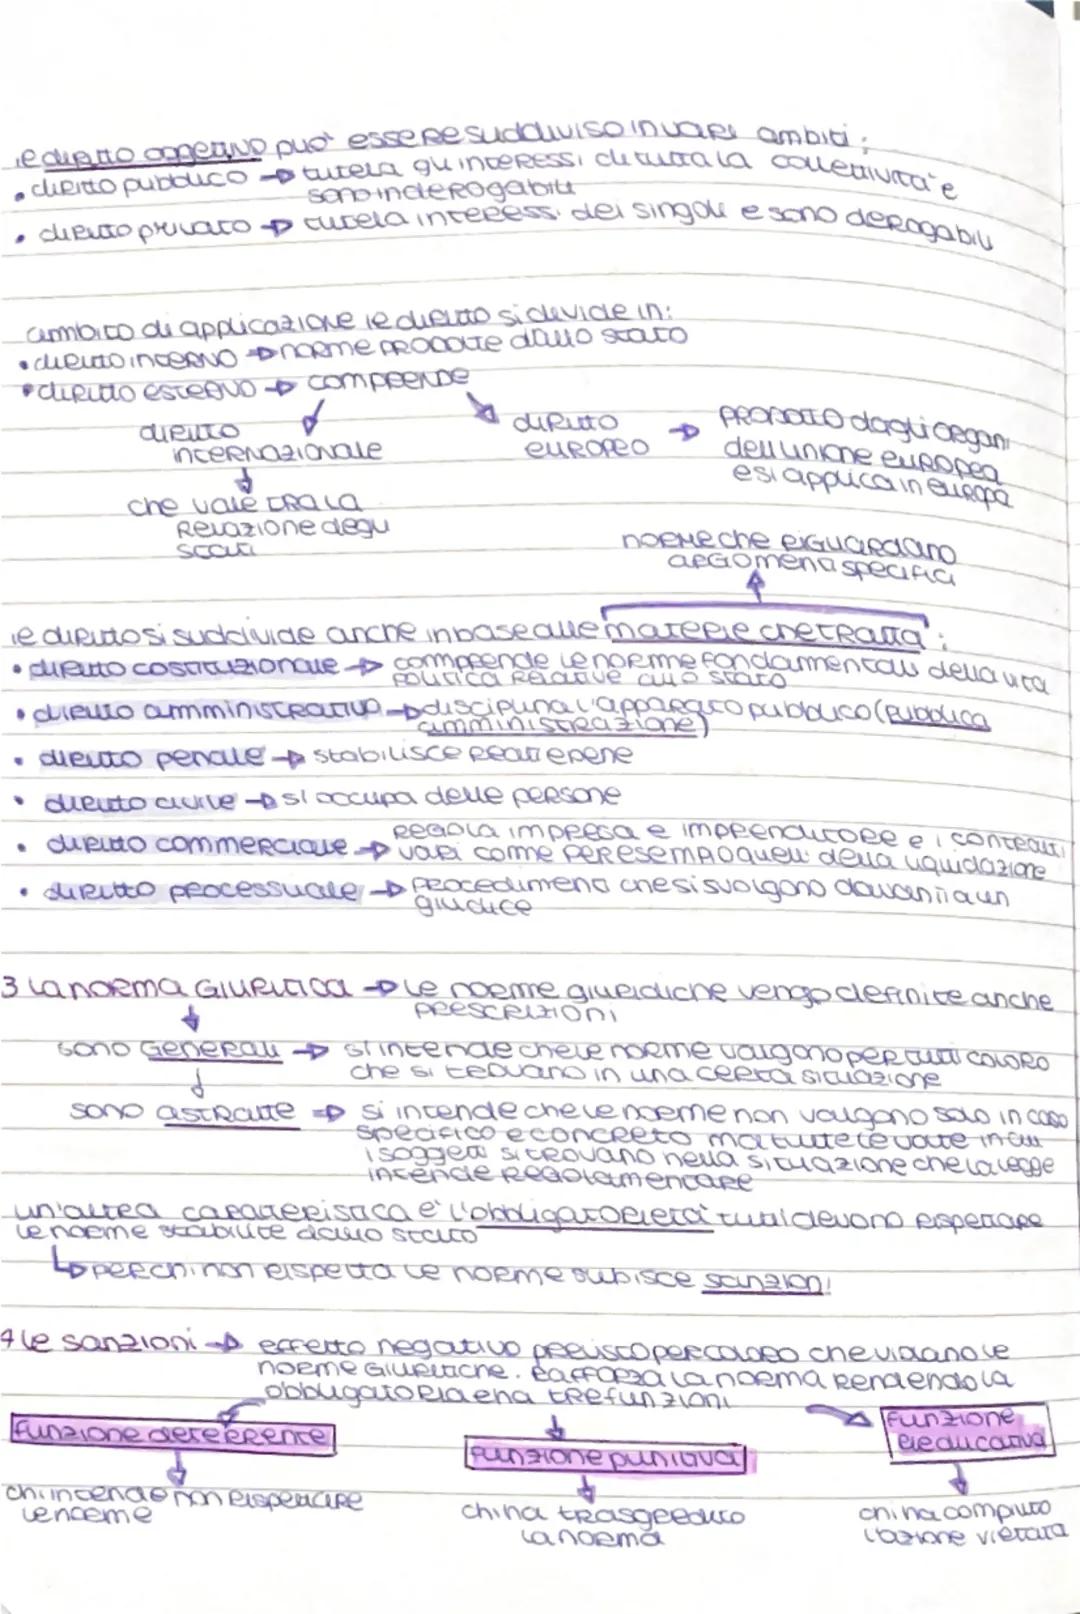 il diritto oggettivo può essere suddiviso in vari ambiti:
• diritto pubblico → tutela gli interessi di tutta la collettività e
sono inderogabili
• diritto privato → tutela interessi dei singoli e sono derogabili
ambito di applicazione il diritto si divide in:
• diritto interno → norme prodotte dallo stato
• diritto esterno → comprende
diritto
internazionale
che vale tra la
relazione degli
stati
diritto
europeo
→ prodotto dagli organi
dell'unione europea
e si applica in europa
norme che riguardano
argomenti specifici
il diritto si suddivide anche in base alle materie che tratta:
• diritto costituzionale → comprende le norme fondamentali della vita
politica relative allo stato
• diritto amministrativo → disciplina l'apparato pubblico (pubblica
amministrazione)
• diritto penale → stabilisce reati e pene
• diritto civile → si occupa delle persone
• diritto commerciale → regola impresa e imprenditore e i contratti
vari come per esempio quelli della liquidazione
• diritto processuale → procedimenti che si svolgono davanti a un
giudice
3 la norma giuridica → le norme giuridiche vengo definite anche
prescrizioni
sono generali → si intende che le norme valgono per tutti coloro
che si trovano in una certa situazione
sono astratte → si intende che le norme non valgono solo in caso
specifico e concreto ma tutte le volte in cui
i soggetti si trovano nella situazione che la legge
intende regolamentare
un'altra caratteristica è l'obbligatorietà tutti devono rispettare
le norme stabilite dallo stato
↳ per chi non rispetta le norme subisce sanzioni
4 le sanzioni → effetto negativo previsto per coloro che violano le
norme giuridiche. rafforza la norma rendendola
obbligatoria e ha tre funzioni
funzione deterrente
chi intende non rispettare
le norme
funzione punitiva
chi ha trasgredito
la norma
funzione
rieducativa
chi ha compiuto
l'azione vietata